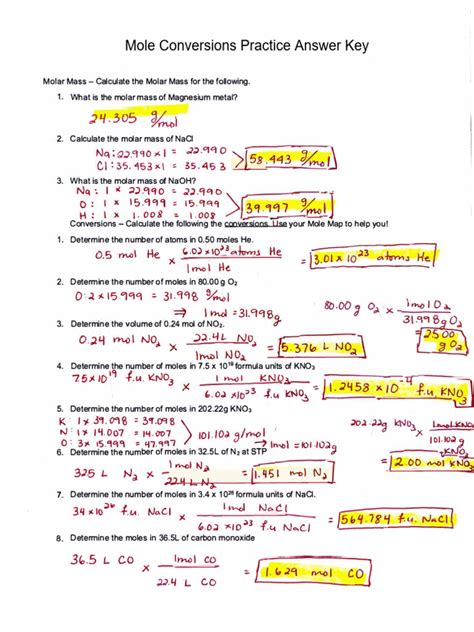 Mole Conversions Practice Answer Key
Molar Mass – Calculate the Molar Mass for the following.
1. What is the molar mass of Magnesium metal?
24.305 g/mol
2. Calculate the molar mass of NaCl
Na: 22.990 x 1 = 22.990
Cl: 35.453 x 1 = 35.453
58.443 g/mol
3. What is the molar mass of NaOH?
Na: 1 x 22.990 = 22.990
O: 1 x 15.999 = 15.999
H: 1 x 1.008 = 1.008
39.997 g/mol
Conversions – Calculate the following the conversions. Use your Mole Map to help you!
1. Determine the number of atoms in 0.50 moles He.
0.5 mol He x 6.02 x 10²³ atoms He
1mol He
= 3.01 x 10²³ atoms He
2. Determine the number of moles in 80.00 g O₂
O: 2 x 15.999 = 31.998 g/mol
⇒ 1mol = 31.998g
80.00 g O₂ x 1mol O₂
31.998g O₂
= 2.500
g O₂
3. Determine the volume of 0.24 mol of NO₂.
0.24 mol NO₂ x 22.4L NO₂
1mol NO₂
= 5.376 L NO₂
4. Determine the number of moles in 7.5 x 10¹⁹ formula units of KNO₃
7.5 x 10¹⁹ f.u. KNO₃ x 1 mol KNO₃
6.02 x 10²³ f.u. KNO₃
= 1.2458 x 10⁻⁴
f.u. KNO₃
5. Determine the number of moles in 202.22g KNO₃
K: 1 x 39.098 = 39.098
N: 1 x 14.007 = 14.007
O: 3 x 15.999 = 47.997
101.102 g/mol
⇒ 1mol = 101.102g
202.22g KNO₃ x 1mol KNO₃
101.102 g
KNO₃
= 2.00 mol KNO₃
6. Determine the number of moles in 32.5L of N₂ at STP
325 L N₂ x 1mol N₂
22.4L N₂
= 1.451 mol N₂
7. Determine the number of moles in 3.4 x 10²⁶ formula units of NaCl.
34 x 10²⁶ f.u. NaCl x 1mol NaCl
6.02 x 10²³ f.u. NaCl
= 564.784 f.u. NaCl
8. Determine the moles in 36.5L of carbon monoxide
36.5 L CO x 1mol CO
22.4 L CO
= 1.629 mol CO